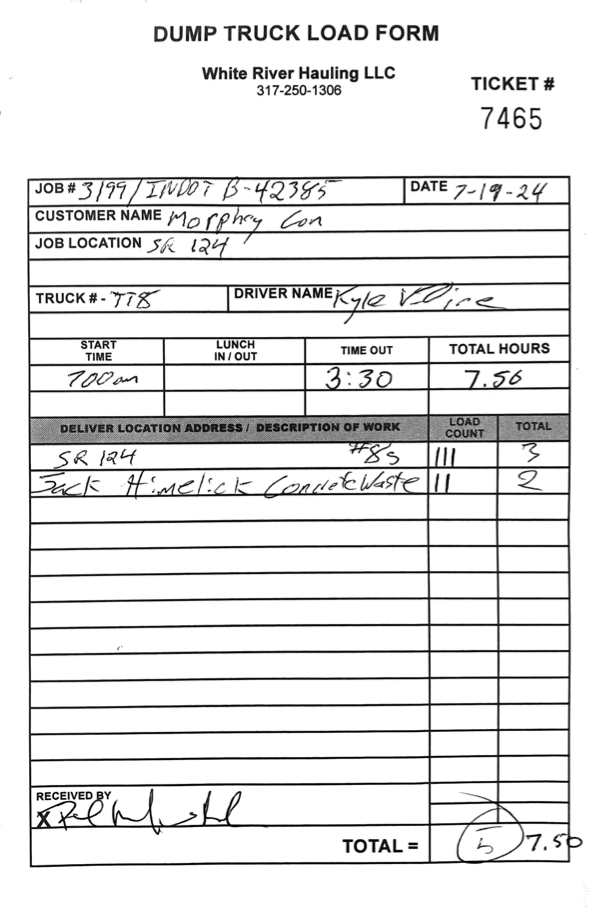 DUMP TRUCK LOAD FORM
White River Hauling LLC
317-250-1306
TICKET #
7465
JOB # 3199/INDOT B-42385 DATE 7-19-24
CUSTOMER NAME Morphey Con
JOB LOCATION SR 124
TRUCK # - TT8 DRIVER NAME Kyle
START TIME LUNCH IN / OUT TIME OUT TOTAL HOURS
700am 3:30 7.50
DELIVER LOCATION ADDRESS / DESCRIPTION OF WORK LOAD COUNT TOTAL
SR 124 #8s III 3
Jack Himelick Concrete Waste II 2
RECEIVED BY
X
TOTAL = 5 7.50